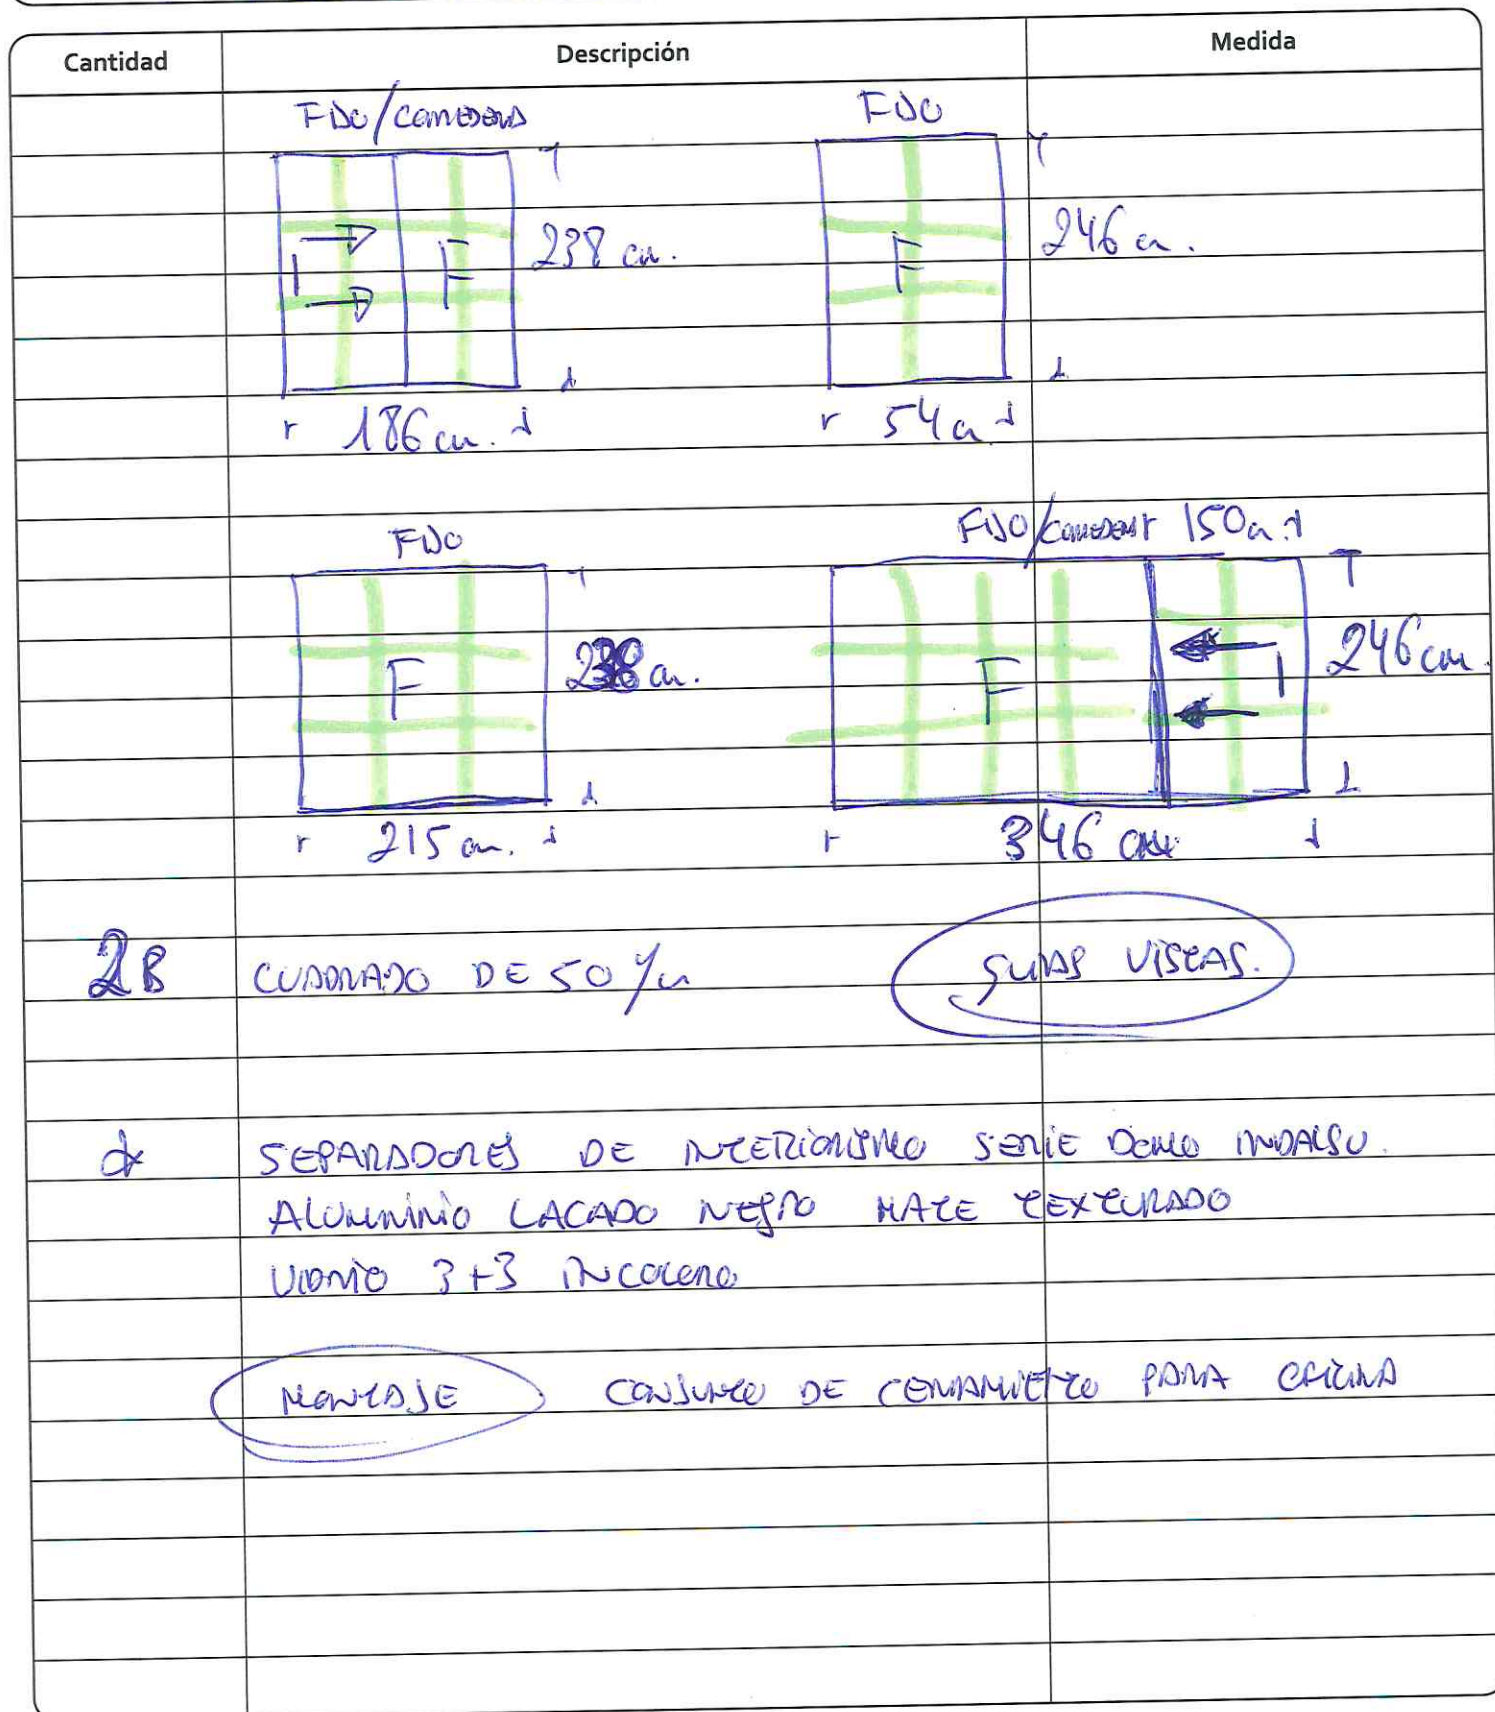 Cantidad Descripción Medida
FIJO/CORREDERA FIJO
1 F 238 cm. F 246 cm.
186 cm. 54 cm
FIJO FIJO/CORREDERA 150 cm.
F 238 cm. F 1 246 cm.
215 cm. 346 cm
2B CUADRADO DE 50 GUIAS VISTAS.
SEPARADORES DE INTERIORISMO SERIE DOMO INDALSU.
ALUMINIO LACADO NEGRO MATE TEXTURADO
VIDRIO 3+3 INCOLORO
MONTAJE CONJUNTO DE CERRAMIENTO PARA OFICINA